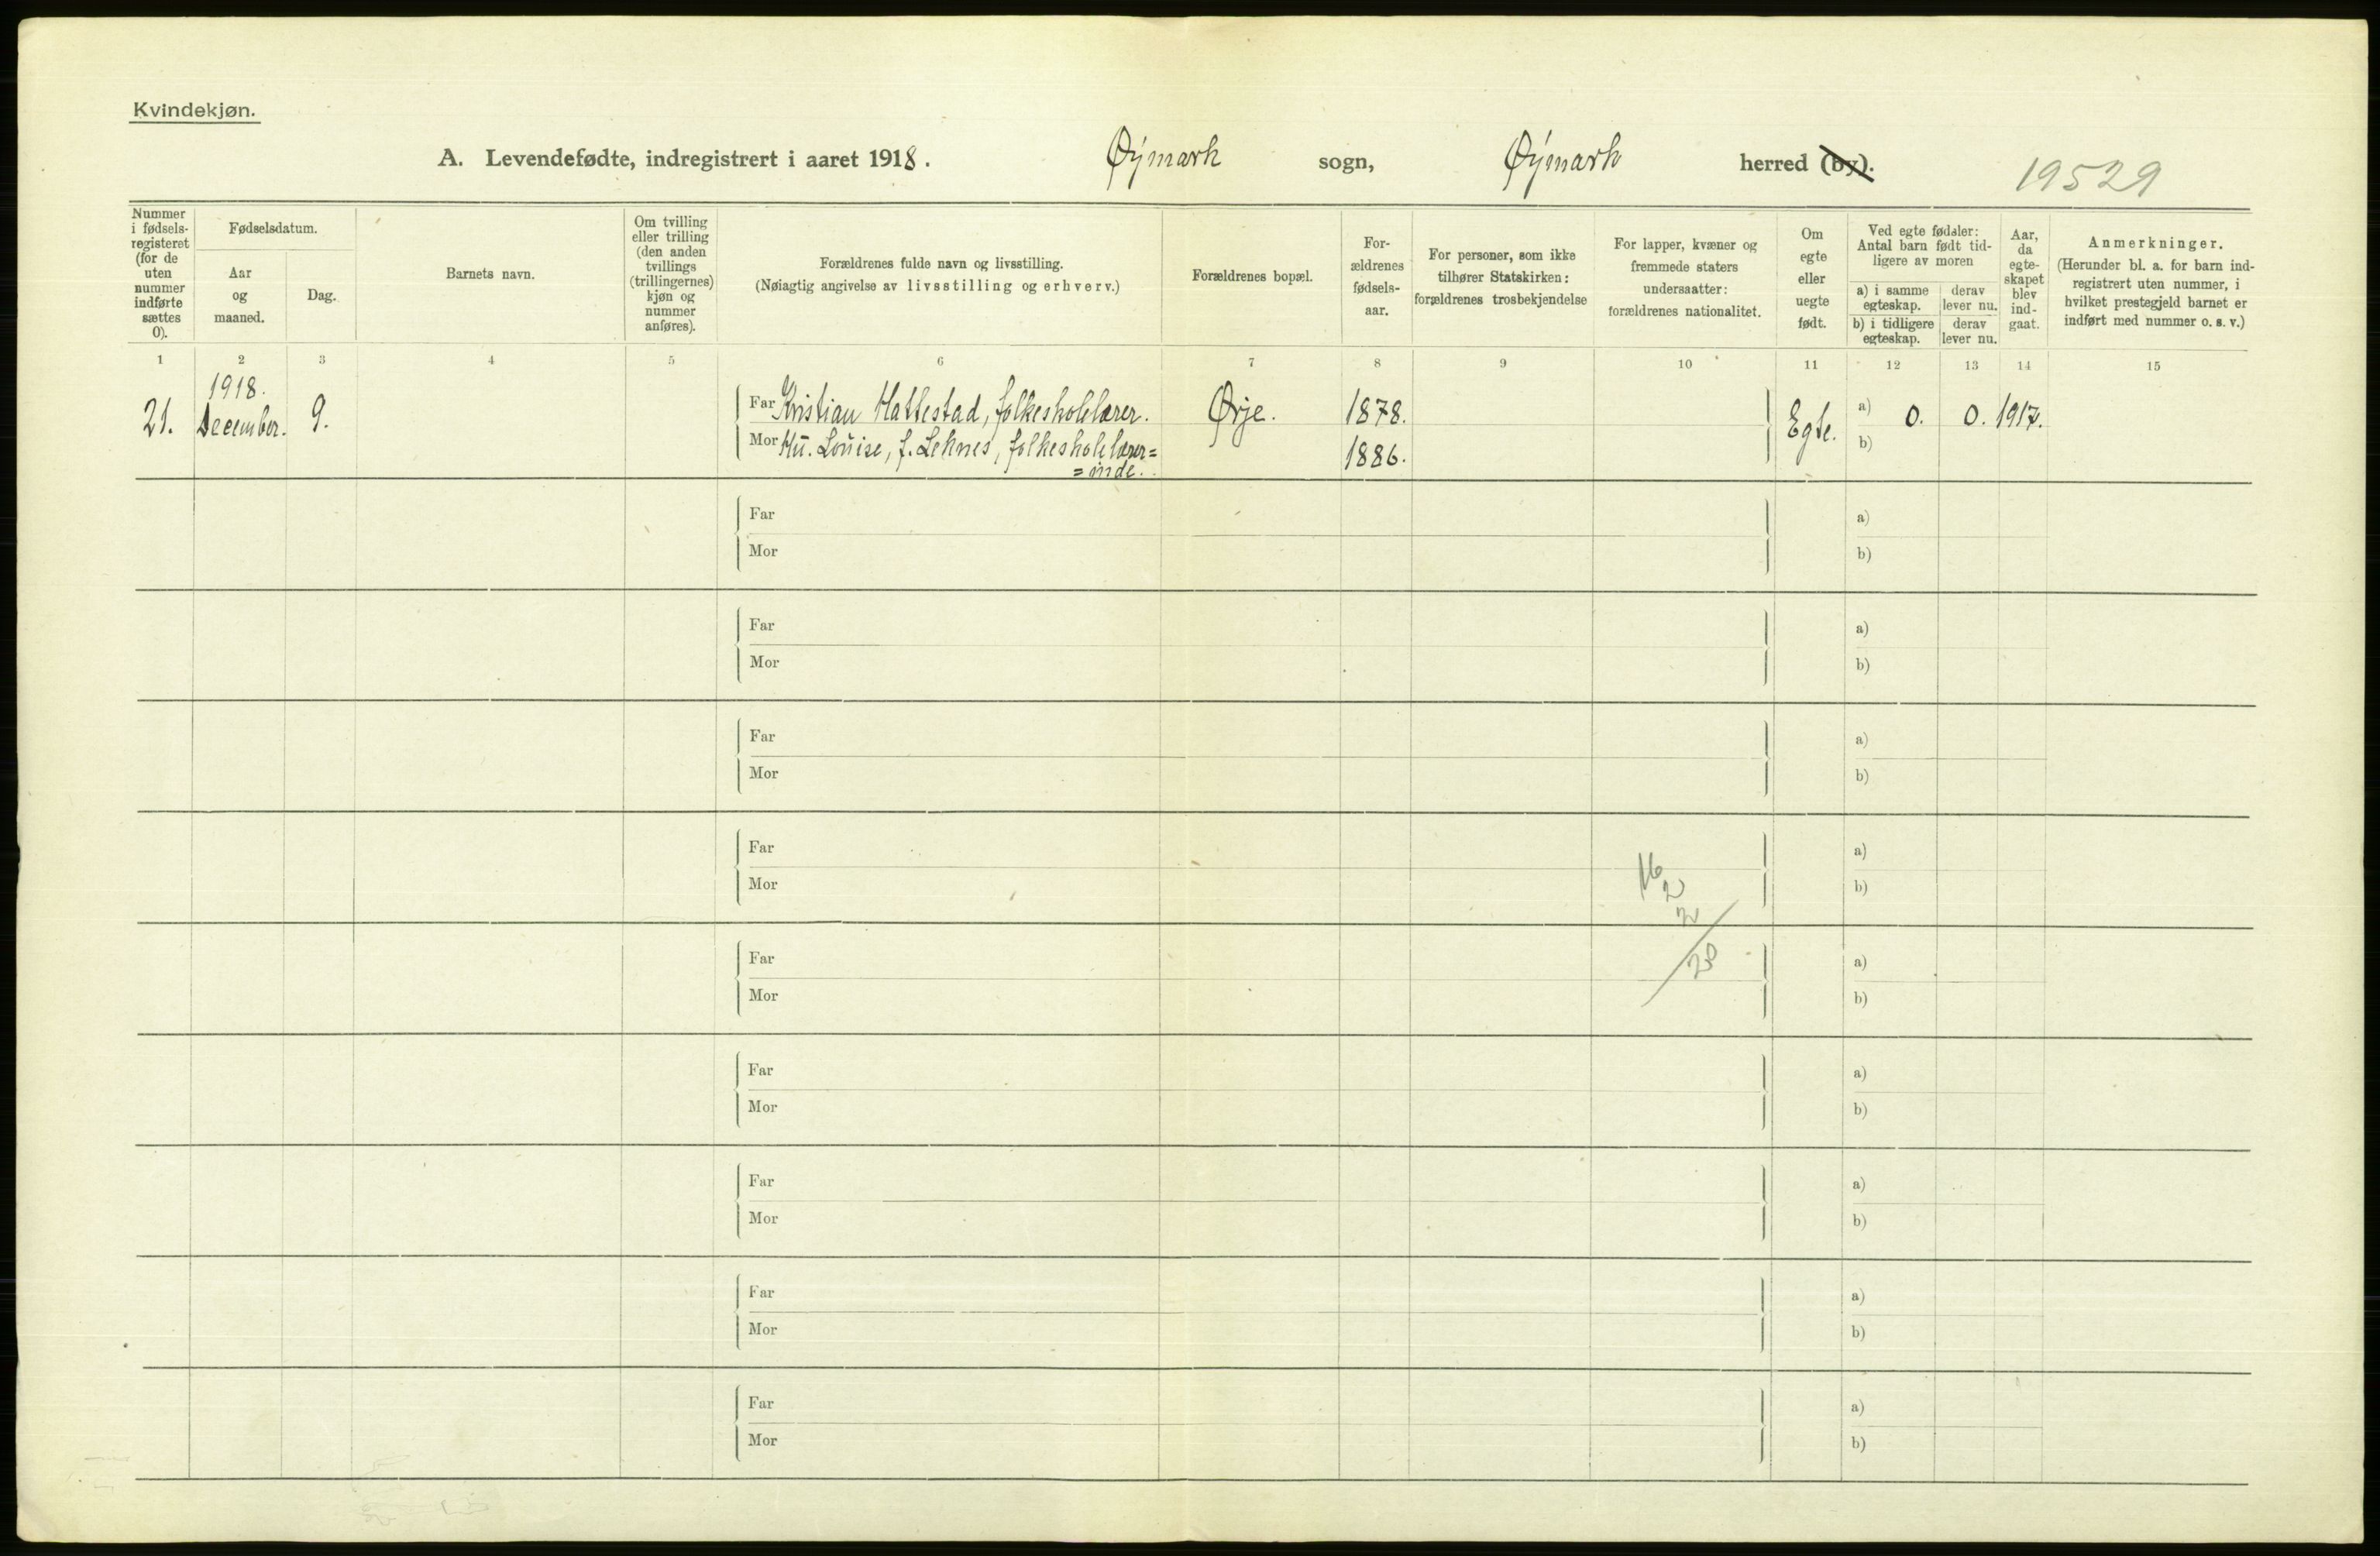 Kvindekjøn.
A. Levendefødte, indregistrert i aaret 1918. Øymark sogn, Øymark herred (by).
19529
Nummer i fødsels-registeret (for de uten nummer indførte sættes 0).
Fødselsdatum.
Aar og maaned.
Dag.
Barnets navn.
Om tvilling eller trilling (den anden tvillings (trillingernes) kjøn og nummer anføres).
Forældrenes fulde navn og livsstilling.
(Nøiagtig angivelse av livsstilling og erhverv.)
Forældrenes bopæl.
For-ældrenes fødsels-aar.
For personer, som ikke tilhører Statskirken: forældrenes trosbekjendelse
For lapper, kvæner og fremmede staters undersaatter: forældrenes nationalitet.
Om egte eller uegte født.
Ved egte fødsler: Antal barn født tid-ligere av moren
a) i samme egteskap.
derav lever nu.
b) i tidligere egteskap.
derav lever nu.
Aar, da egte-skapet blev ind-gaat.
Anmerkninger.
(Herunder bl. a. for barn ind-registrert uten nummer, i hvilket prestegjeld barnet er indført med nummer o. s. v.)
1 2 3 4 5 6 7 8 9 10 11 12 13 14 15
1918.
21. December. 9. Far Kristian Hattestad, folkeskolelærer. Ørje. 1878. Egte. a) 0. 0. 1917.
Mor Hu. Louise, f. Leknes, folkeskolelærer= 1886. b)
=inde.
Far a)
Mor b)
Far a)
Mor b)
Far a)
Mor b)
Far a)
16
Mor b)
2
2
Far 20 a)
Mor b)
Far a)
Mor b)
Far a)
Mor b)
Far a)
Mor b)
Far a)
Mor b)